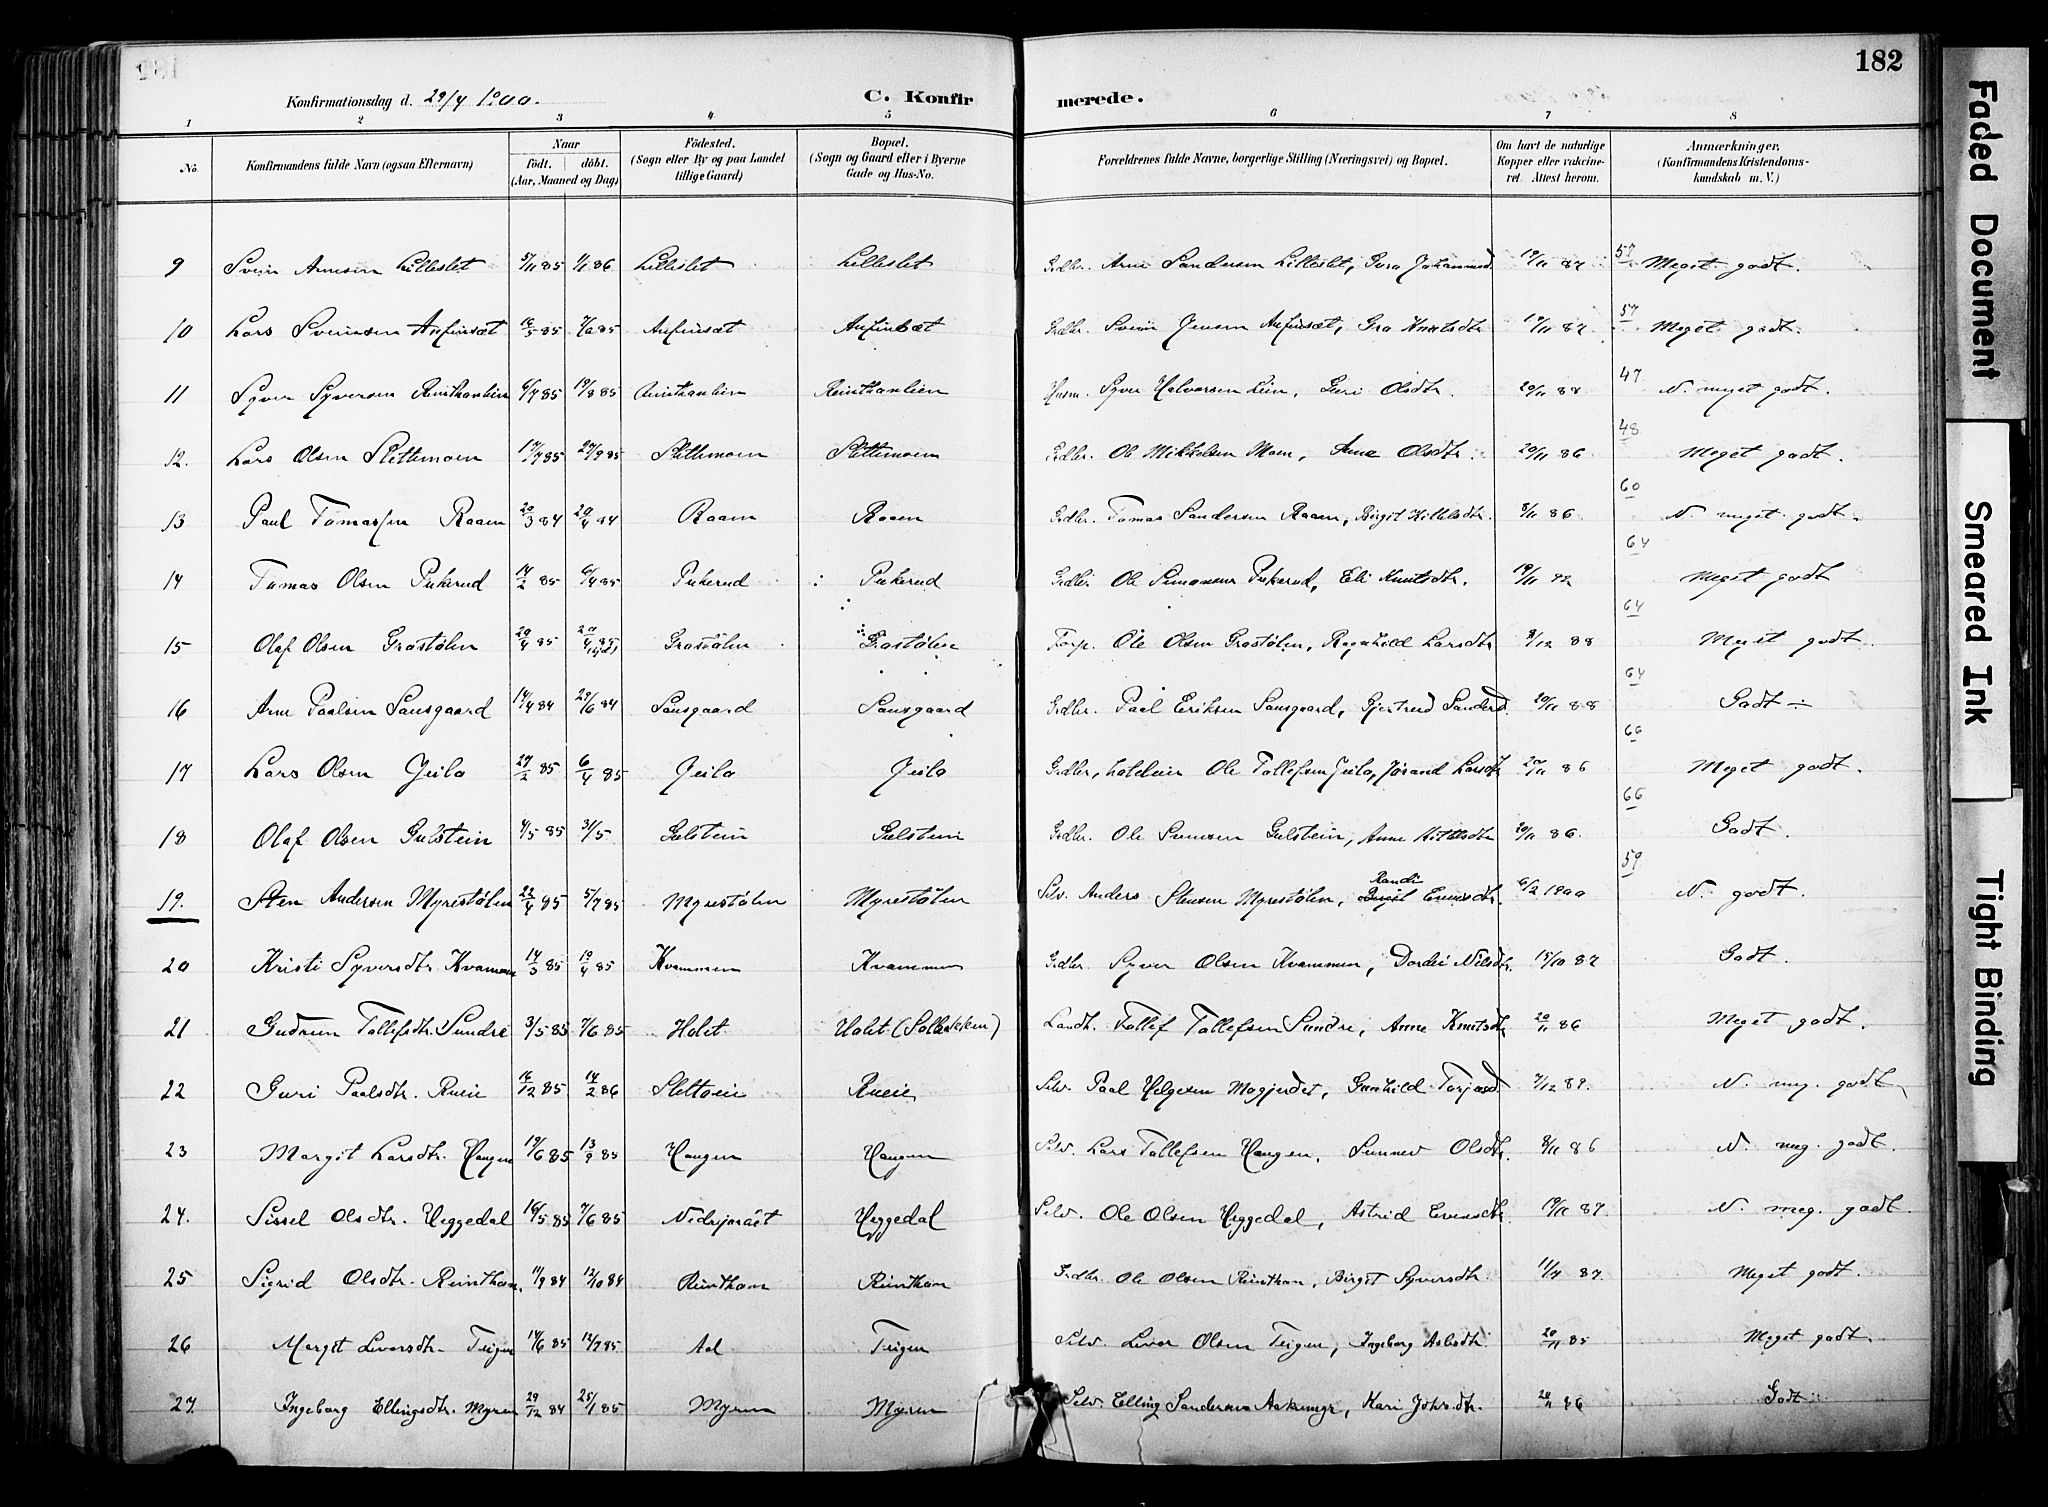 182
Konfirmationsdag d. 29/4 1900.
C. Konfirmerede.
1 2 3 4 5 6 7 8
No.
Konfirmandens fulde Navn (ogsaa Efternavn)
Naar
födt. döbt.
(Aar, Maaned og Dag)
Födested.
(Sogn eller By og paa Landet
tillige Gaard)
Bopæl.
(Sogn og Gaard efter i Byerne
Gade og Hus-No.
Forældrenes fulde Navne, borgerlige Stilling (Næringsvei) og Bopæl.
Om havt de naturlige
Kopper eller vakcine-
ret Attest herom.
Anmærkninger.
(Konfirmandens Kristendoms-
kundskab m. V.)
9 Svein Arnesen Lilleslet 5/11 85 1/1 86 Lilleslet Lilleslet Grdbr. Arne Sandersen Lilleslet, Guro Johannesd. 19/11 87 57 Meget godt.
10 Lars Sveinsen Anfinset 16/5 85 7/6 85 Anfinset Anfinset Grdbr. Svein Jensen Anfinset, Gro Knutsdtr 19/11 87 57 Meget godt.
11 Syver Syversen Reinthanlien 6/7 85 19/8 85 Reinthanlien Reinthanlien Husm. Syver Halvorsen Lien, Guri Olsdtr. 20/11 88 47 N. meget godt.
12. Lars Olsen Slettemoen 17/7 85 27/9 85 Slettemoen Slettemoen Grdbr. Ole Mikkelsen Moen, Anne Olsdtr. 20/11 86 48 Meget godt.
13 Paul Tomassen Raaen 20/3 84 20/4 84 Raaen Raaen Grdbr. Tomas Sandersen Raaen, Birgit Kittelsdtr. 8/11 86 60 N. meget godt.
14 Tomas Olsen Pukerud 14/2 85 6/4 85 Pukerud Pukerud Grdbr. Ole Simonsen Pukerud, Eli Knutsdtr. 19/11 92 64 Meget godt
15 Olaf Olsen Grostølen 20/4 85 20/4 85 Grostølen Grostølen Torp. Ole Olsen Grostølen, Ragnhild Larsdtr 8/12 88 64 Meget godt.
16 Arne Paalsen Sansgaard 14/4 84 29/6 84 Sansgaard Sansgaard Grdbr. Paal Eriksen Sansgaard, Gjertrud Sandersd. 20/11 88 64 Godt ÷
17 Lars Olsen Geilo 27/2 85 6/4 85 Geilo Geilo Grdbr, Ole Tollefsen Geilo, Jørand Larsdtr 20/11 86 66 Meget godt.
18 Olaf Olsen Gulstein 4/5 85 31/5 Gulstein Gulstein Grdbr. Ole Svensen Gulstein, Anne Kittelsdtr 20/11 86. 66 Godt.
19. Sten Andersen Myrestølen 22/4 85 5/7 85 Myrestølen Myrestølen Selv. Anders Stensen Myrestølen, Randi Evensdtr. 6/2 1900 59 N. godt.
20 Kristi Syversdtr. Kvammen 14/3 85 19/4 85 Kvammen Kvammen Grdbr. Syver Olsen Kvammen, Dordei Nilsdtr. 15/10 87 Godt.
21 Gudrun Tollefsdtr. Sundre 3/5 85 7/6 85 Holet Holet Landh. Tollef Tollefsen Sundre, Anne Knutsdtr 20/11 86 Meget godt.
22 Guri Paalsdtr. Rueie 16/12 85 14/2 86 Slettoeie Rueie Selv. Paal Helgesen Mogjerdet, Gunhild Torjusd. 7/12 89. N. meg. godt
23 Margit Larsdtr. Haugen 19/6 85 13/9 85 Haugen Haugen Selv. Lars Tollefsen Haugen, Sunnev Olsdtr. 8/11 86 N. meg. godt.
24. Sissel Olsdtr. Heggedal 16/5 85 7/6 85 Heggedal Selv. Ole Olsen Heggedal, Astrid Evensdtr. 19/11 87. N. meg. godt.
25 Sigrid Olsdtr. Reinthan. 11/9 84 12/10 84 Reinthan Reinthan Grdbr. Ole Olsen Reinthan, Birgit Syversdtr. 11/7 87. Meget godt.
26 Margit Leversdtr. Teigen 14/6 85 12/7 85 Aal Teigen Selv. Lever Olsen Teigen, Ingeborg Aslesdtr. 20/11 85 Meget godt.
27. Ingeborg Ellingsdtr. Myren 29/12 84 25/1 85 Myren Myren Selv. Elling Sandersen, Kari Johs.dtr. 20/11 86 Godt
Faded Document
Smeared Ink
Tight Binding